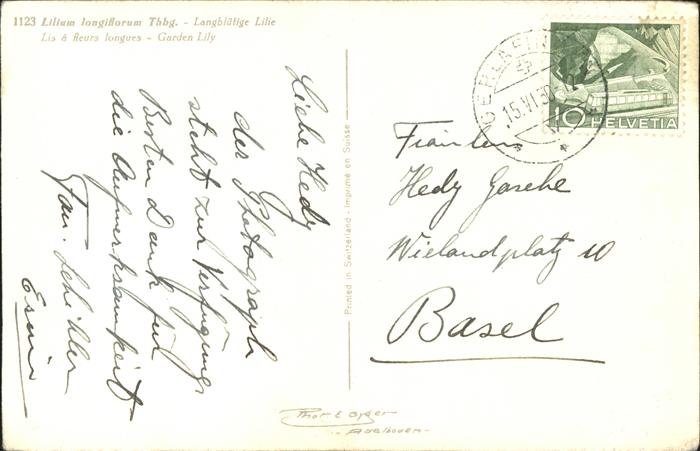 1123 Lilium longiflorum Thbg. - Langblütige Lilie
Lis à fleurs longues - Garden Lily
Liebe Hedy
der Photograph
steht zur Verfügung
Besten Dank für
die Aufmerksamkeit
Fam.
Printed in Switzerland - Imprimé en Suisse
15.VI.50
10 HELVETIA
Fräulein
Hedy
Wielandplatz 10
Basel
Phot E Gyger
- Adelboden -